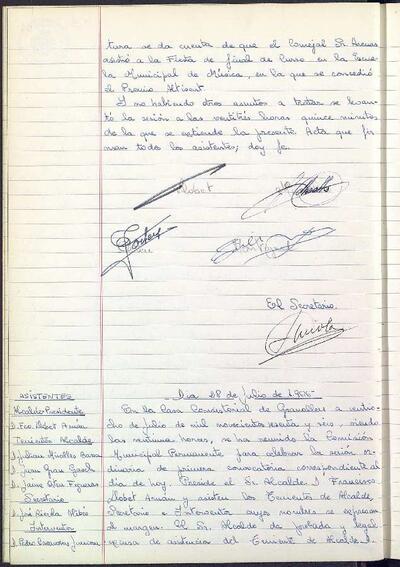 tura se da cuenta de que el Concejal Sr. Arenas
asistió a la Fiesta de final de Curso en la Escue-
la Municipal de Música, en la que se concedió
el Premio Altisent.
Y no habiendo otros asuntos a tratar se levan-
tó la sesión a las veintitrés horas quince minutos
de la que se extiende la presente Acta que fir-
man todos los asistentes; doy fe.
Llobet
El Secretario.
ASISTENTES
Día 28 de Julio de 1966
Alcalde Presidente
En la Casa Consistorial de Granollers a veintio-
D. Fco. Llobet Arnán
cho de julio de mil novecientos sesenta y seis, siendo
Tenientes Alcalde
las veintiuna horas, se ha reunido la Comisión
Municipal Permanente para celebrar la sesión or-
dinaria de primera convocatoria correspondiente al
día de hoy. Preside el Sr. Alcalde D. Francisco
Llobet Arnán y asisten los Tenientes de Alcalde,
Secretario
Secretario e Interventor cuyos nombres se expresan
al margen. El Sr. Alcalde da por dada y legal
Interventor
excusa de asistencia del Teniente de Alcalde D.